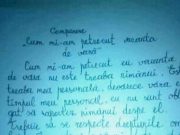 Compunere
"Cum mi-am petrecut vacanța
de vară"
Cum mi-am petrecut eu vacanța
de vară nu este treaba nimănui. Este
treaba mea personală, deoarece vara e
timpul meu personal, eu nu sunt obli-
gat să raportez nimănui despre el.
Trebuie să se respecte drepturile